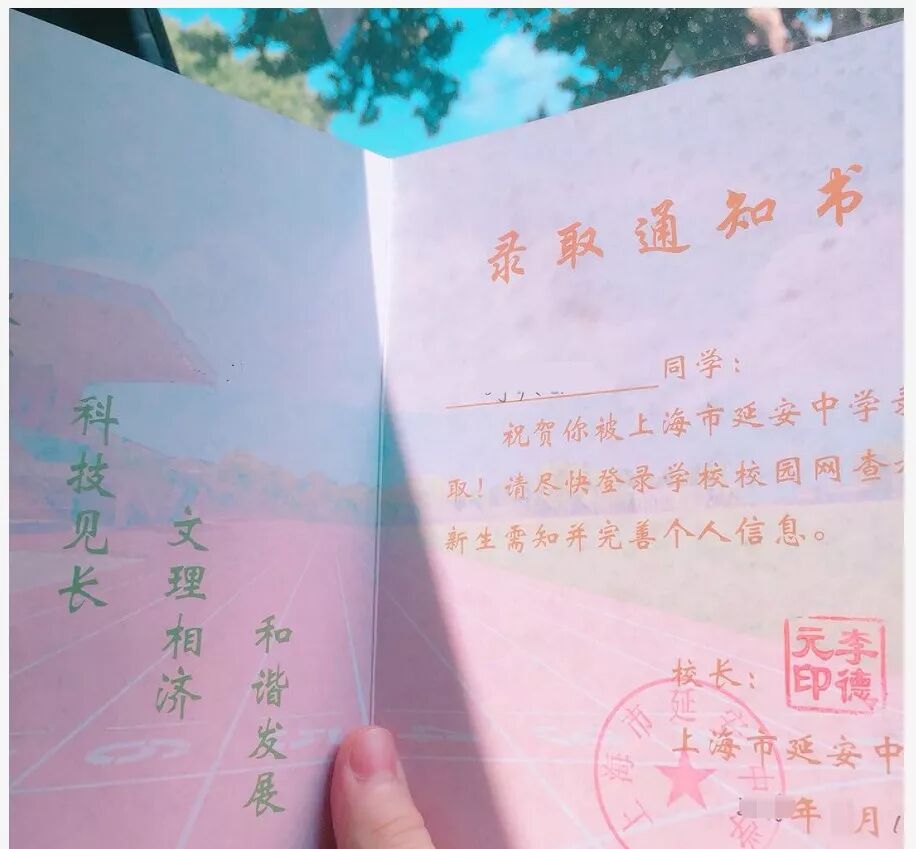 科技见长
文理相济
和谐发展
录取通知书
同学：
祝贺你被上海市延安中学录
取！请尽快登录学校校园网查
新生需知并完善个人信息。
校长：
李德
元印
上海市延安中
年 月1
上海市延安中学